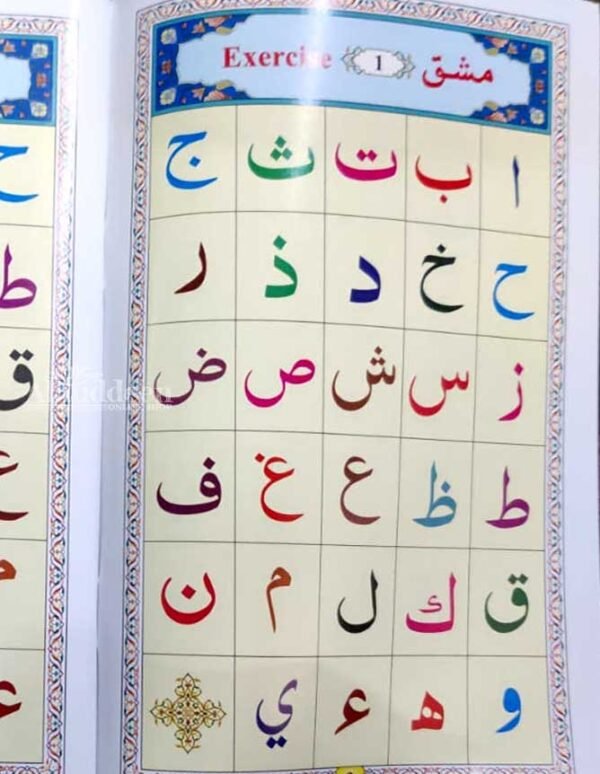 Exercise 1 مشقّ
ا ب ت ث ج
ح خ د ذ ر
ز س ش ص ض
ط ظ ع غ ف
ق ك ل م ن
و ه ء ي
ح
ط
ق
ع
م
ء